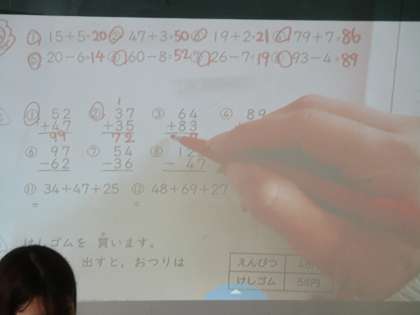 ① 15+5=20 ② 47+3=50 ③ 19+2=21 ④ 79+7=86
⑤ 20-6=14 ⑥ 60-8=52 ⑦ 26-7=19 ⑧ 93-4=89
① 52 ② 37 ③ 64 ④ 89
+47 +35 +83
99 72 7
1
⑥ 97 ⑦ 54 ⑧ 12
-62 -36 - 47
⑪ 34+47+25 ⑫ 48+69+27
= =
けしゴムを 買います。
出すと,おつりは
えんぴつ
けしゴム 58円